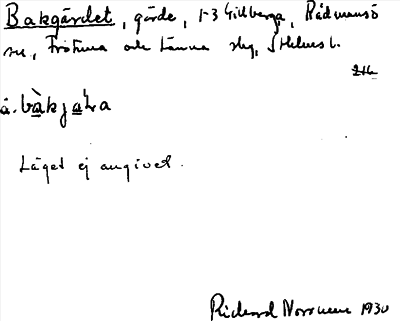 Bakgärdet, gärde, 1-3 Gillberga, Rådmansö
sn., Frötuna och Länna skg, Sthlms l.
å. bàkjạḷa
Läget ej angivet.
Rickard Norrman 1930